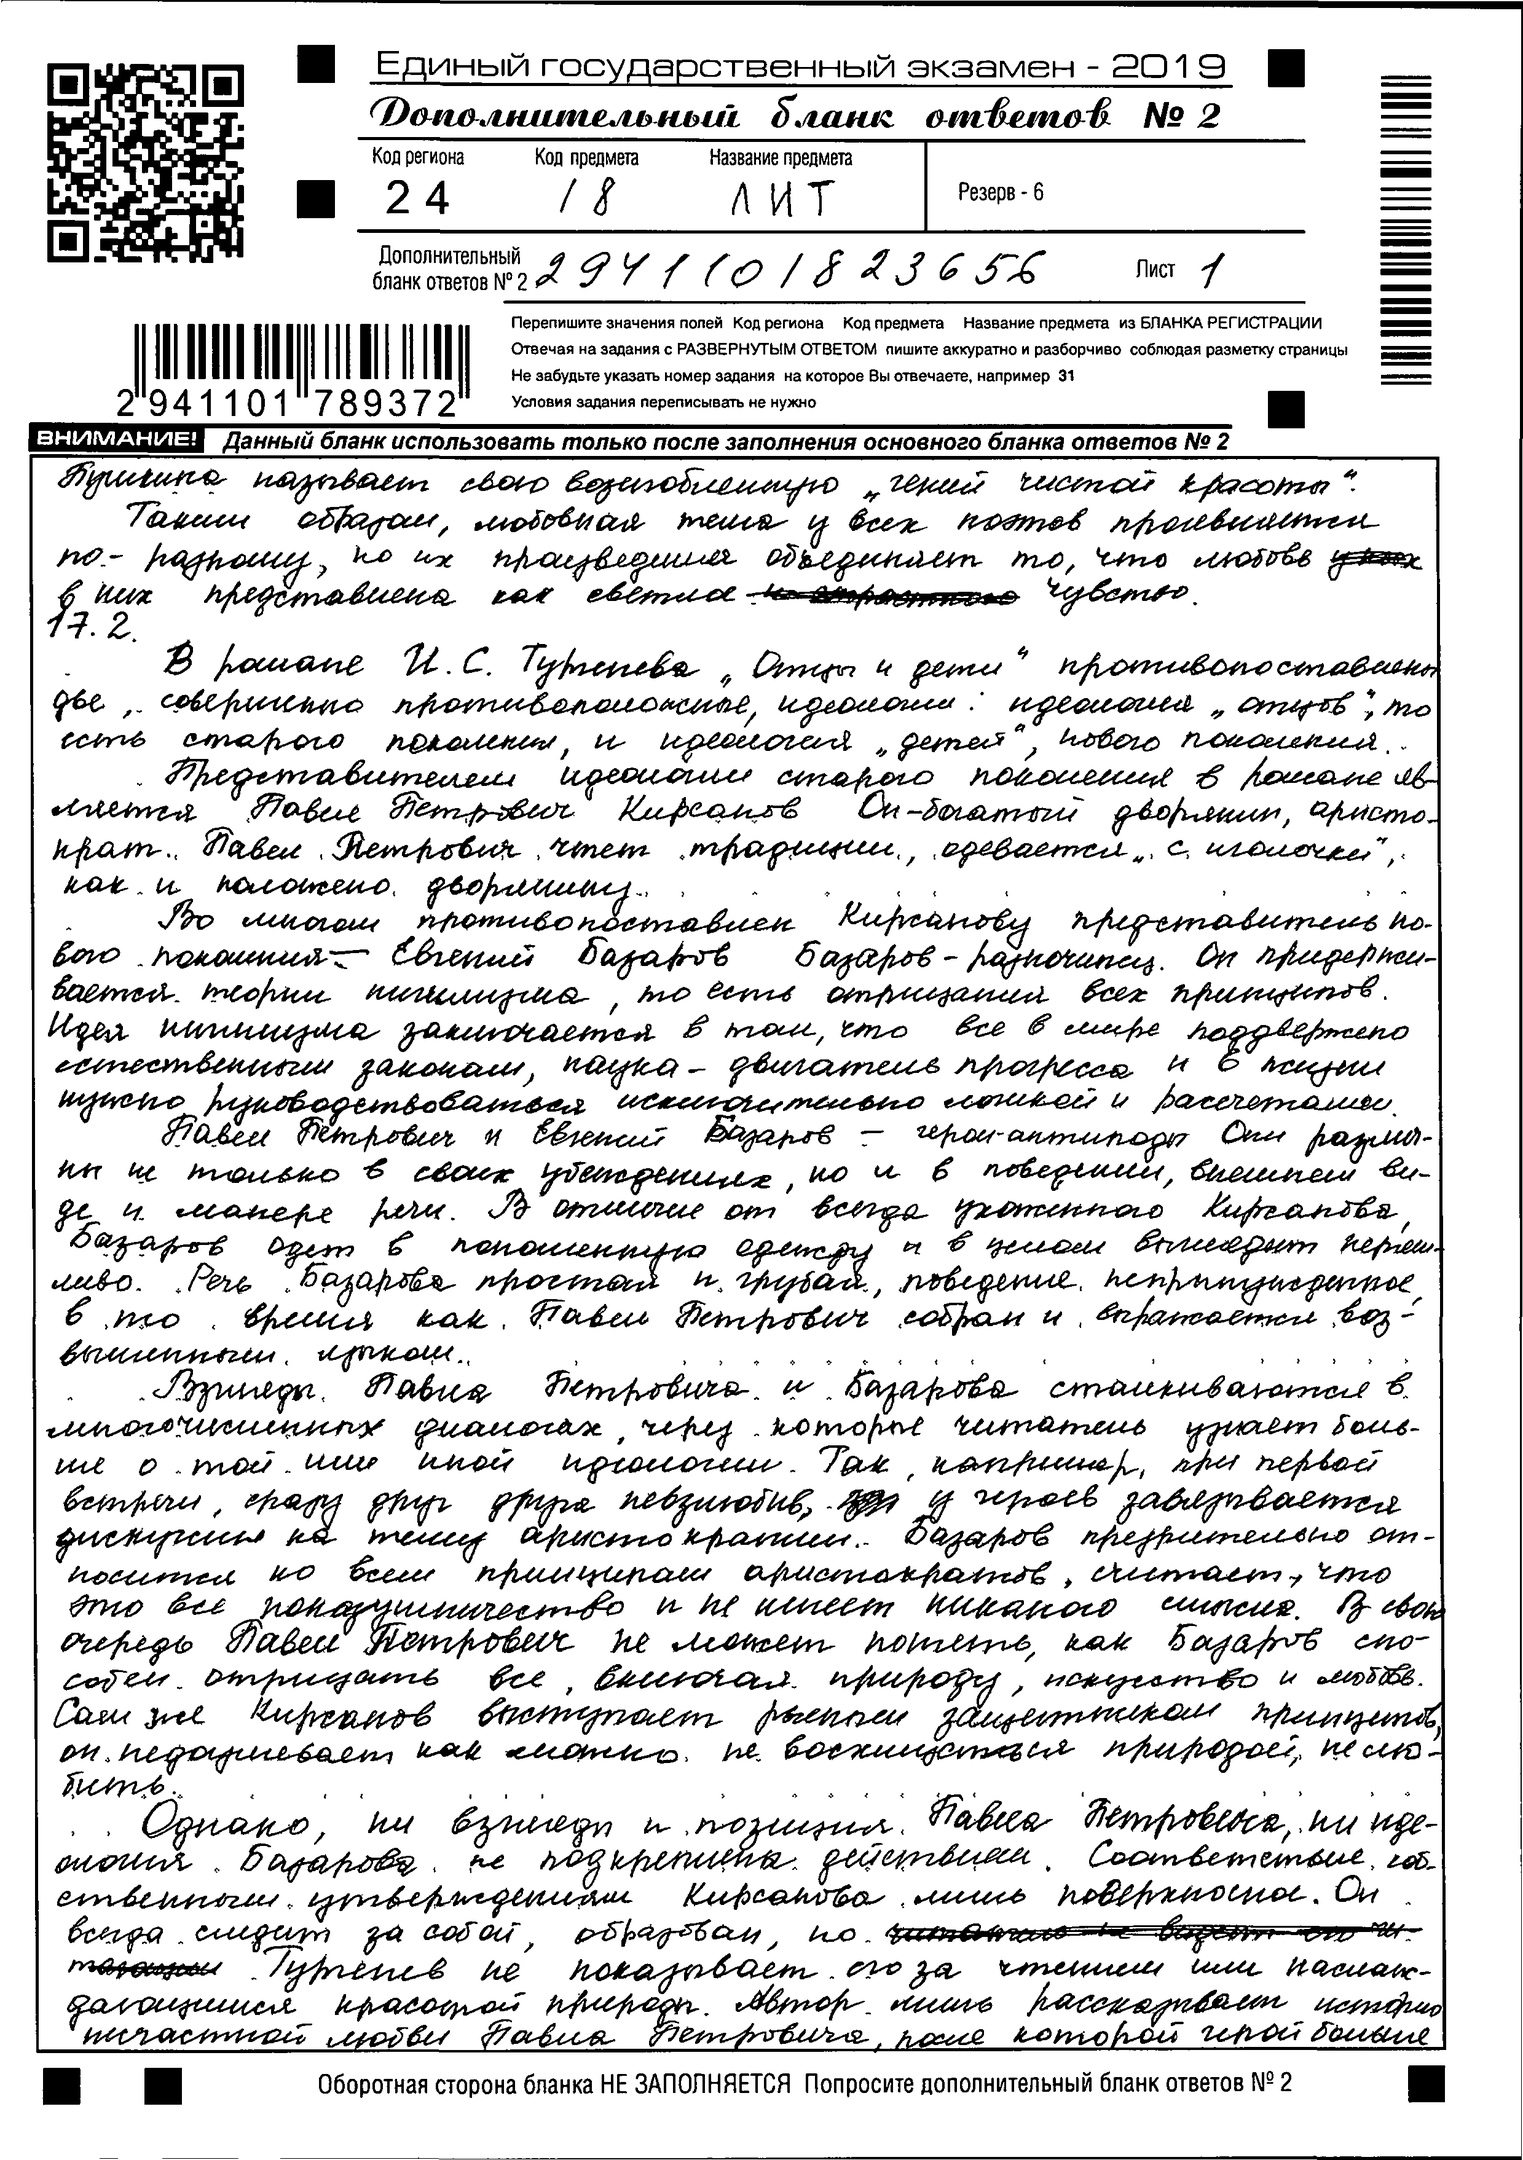 Единый государственный экзамен - 2019
Дополнительный бланк ответов № 2
Код региона Код предмета Название предмета
24 18 ЛИТ
Резерв - 6
Дополнительный
бланк ответов № 2 2941101823656 Лист 1
Перепишите значения полей Код региона Код предмета Название предмета из БЛАНКА РЕГИСТРАЦИИ
Отвечая на задания с РАЗВЕРНУТЫМ ОТВЕТОМ пишите аккуратно и разборчиво соблюдая разметку страницы
Не забудьте указать номер задания на которое Вы отвечаете, например 31
Условия задания переписывать не нужно
2941101789372
ВНИМАНИЕ! Данный бланк использовать только после заполнения основного бланка ответов № 2
Пушкина называет свою возлюбленную „гений чистой красоты".
Таким образом, любовная тема у всех поэтов проявляется
по-разному, но их произведения объединяет то, что любовь
в них представлена как светлое чувство.
17.2.
В романе И.С. Тургенева „Отцы и дети" противопоставлены
две, совершенно противоположные, идеологии: идеология „отцов", то
есть старого поколения, и идеология „детей", нового поколения.
Представителем идеологии старого поколения в романе яв-
ляется Павел Петрович Кирсанов Он-богатый дворянин, аристо-
крат. Павел Петрович чтет традиции, одевается „с иголочки",
как и положено дворянину.
Во многом противопоставлен Кирсанову представитель но-
вого поколния — Евгений Базаров Базаров - разночинец. Он придержи-
вается теории нигилизма, то есть отрицания всех принципов.
Идея нигилизма заключается в том, что все в мире поддвержено
естественным законам, наука - двигатель прогресса и в жизни
нужно руководствоваться исключительно логикой и рассчетами.
Павел Петрович и Евгений Базаров - герои-антиподы Они различ-
ны не только в своих убеждениях, но и в поведении, внешнем ви-
де и манере речи. В отличие от всегда ухоженного Кирсанова,
Базаров одет в поношенную одежду и в целом выглядит неряш-
ливо. Речь Базарова простая и грубая, поведение непринужденное,
в то время как Павел Петрович собран и выражается воз-
вышенным языком.
Взгляды Павла Петровича и Базарова сталкиваются в
многочисленных диалогах, через которые читатель узнает боль-
ше о той или иной идеологии. Так, например, при первой
встрече, сразу друг друга невзлюбив, у героев завязывается
дискуссия на тему аристократии. Базаров презрительно от-
носится ко всем принципам аристократов, считает, что
это все показушничество и не имеет никакого смысла. В свою
очередь Павел Петрович не может понять, как Базаров спо-
собен отрицать все, включая природу, искусство и любовь.
Сам же Кирсанов выступает рьяным защитником принципов,
он недоумевает как можно не восхищаться природой, не лю-
бить.
Однако, ни взгляды и позиция Павла Петровича, ни иде-
ология Базарова не подкреплена действием. Соответствие соб-
ственным утверждениям Кирсанова лишь поверхностна. Он
всегда следит за собой, образован, но
Тургенев не показывает его за чтением или наслаж-
дающимся красотой природы. Автор лишь рассказывает историю
несчастной любви Павла Петровича, после которой герой больше
Оборотная сторона бланка НЕ ЗАПОЛНЯЕТСЯ Попросите дополнительный бланк ответов № 2